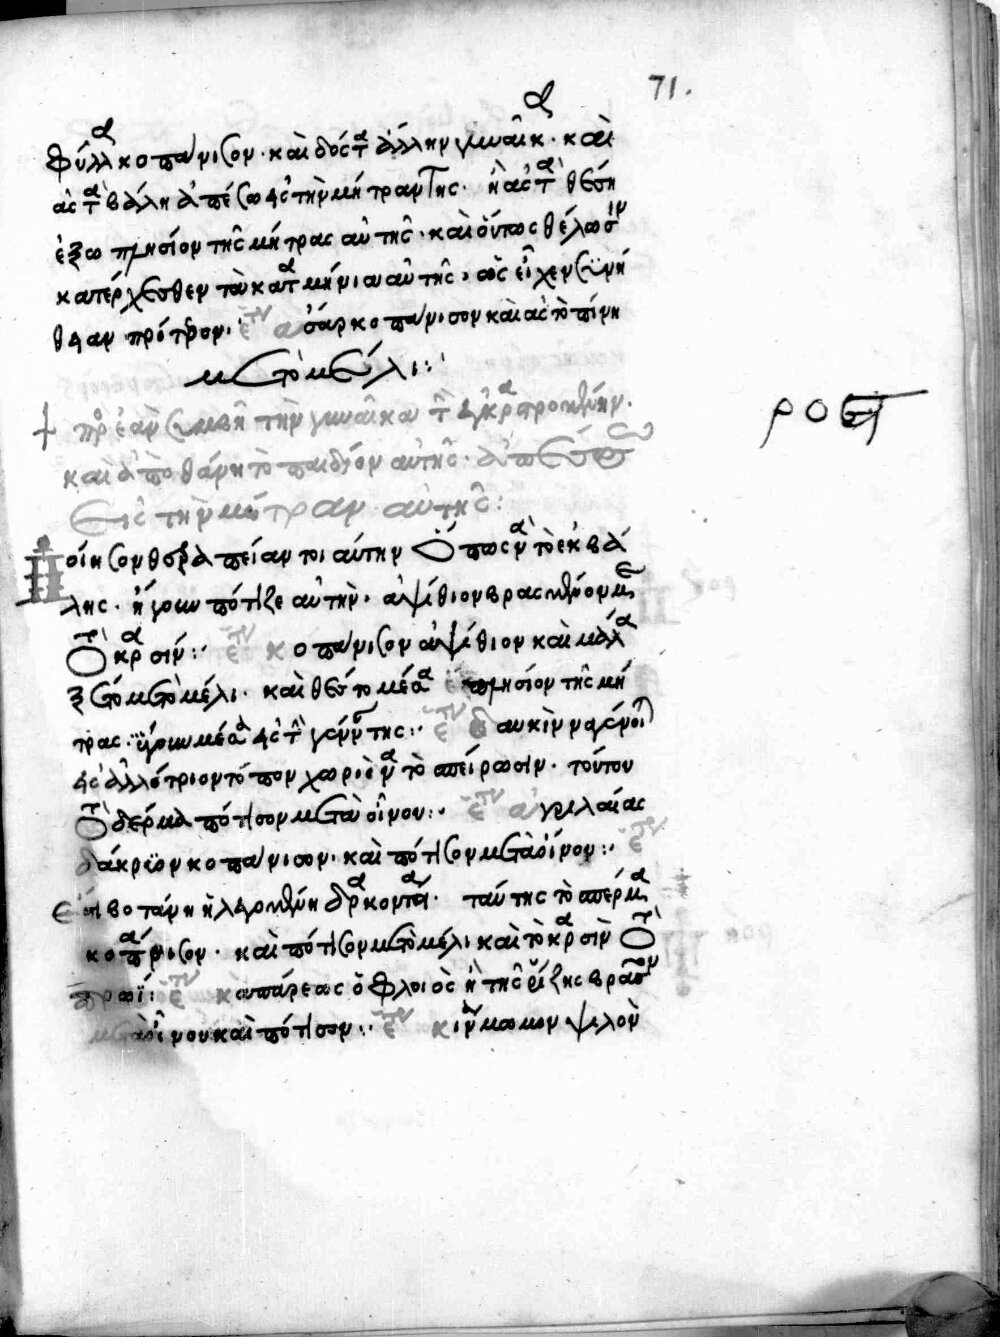 71.
φύλλα κοπάνισον· καὶ δός τ ἄλλην γυναῖκα· καὶ
ἀς τα βάλη ἀπέσω εἰς τὴν μήτραν της· ἢ ἀς τα θέση
ἔξω πλησίον τῆς μήτρας αὐτῆς· καὶ οὕτως θέλουσιν
κατέρχεσθεν τὰ καταμήνια αὐτῆς, ὡς εἶχεν συνή
θειαν πρότερον· ἕτερον κοπάνισον καὶ ἀς τὸ πίνη
μετὸ μέλι:
περ ἐὰν συμβῆ τὴν γυναῖκα
καὶ ἀποθάνη τὸ παιδίον αὐτῆς· ἀπέσω
εἰς τὴν μήτραν αὐτῆς:
ροστ
Ποίησον θεραπείαν τοιαύτην ὅπως να τὸ ἐκβά
λης· ἤγουν πότιζε αὐτήν· ἀψίθιον βρασμένον με
κρασίν: ἕτερον κοπάνισον ἀψίθιον καὶ μάλα
ξέτο μετὸ μέλι· καὶ θέστο μέσα πλησίον τῆς μή
τρας· ἤγουν μέσα εἰς τ γένναν της: ἕτερον
εἰς ἀλλότριον τόπον χωρὶς να τὸ ἀπείρωσιν· τούτου
τὸ δέρμα πότισον μετὰ οἴνου: ἕτερον ἀγριλαίας
δάκρυον κοπάνισον· καὶ πότισον μετὰ οἴνου: ἕτερον
βοτάνη ἡ λεγομένη δρακοντία· ταύτης τὸ σπέρμα
κοπάνισον· καὶ πότισον μετὸ μέλι καὶ τὸ κρασὶν τὸ
πρωΐ: ἕτερον καπάρεως ὁ φλοιὸς ἢ τῆς ῥίζης βρασον
μετὰ οἴνου καὶ πότισον: ἕτερον κινάμωμον ψιλὸν